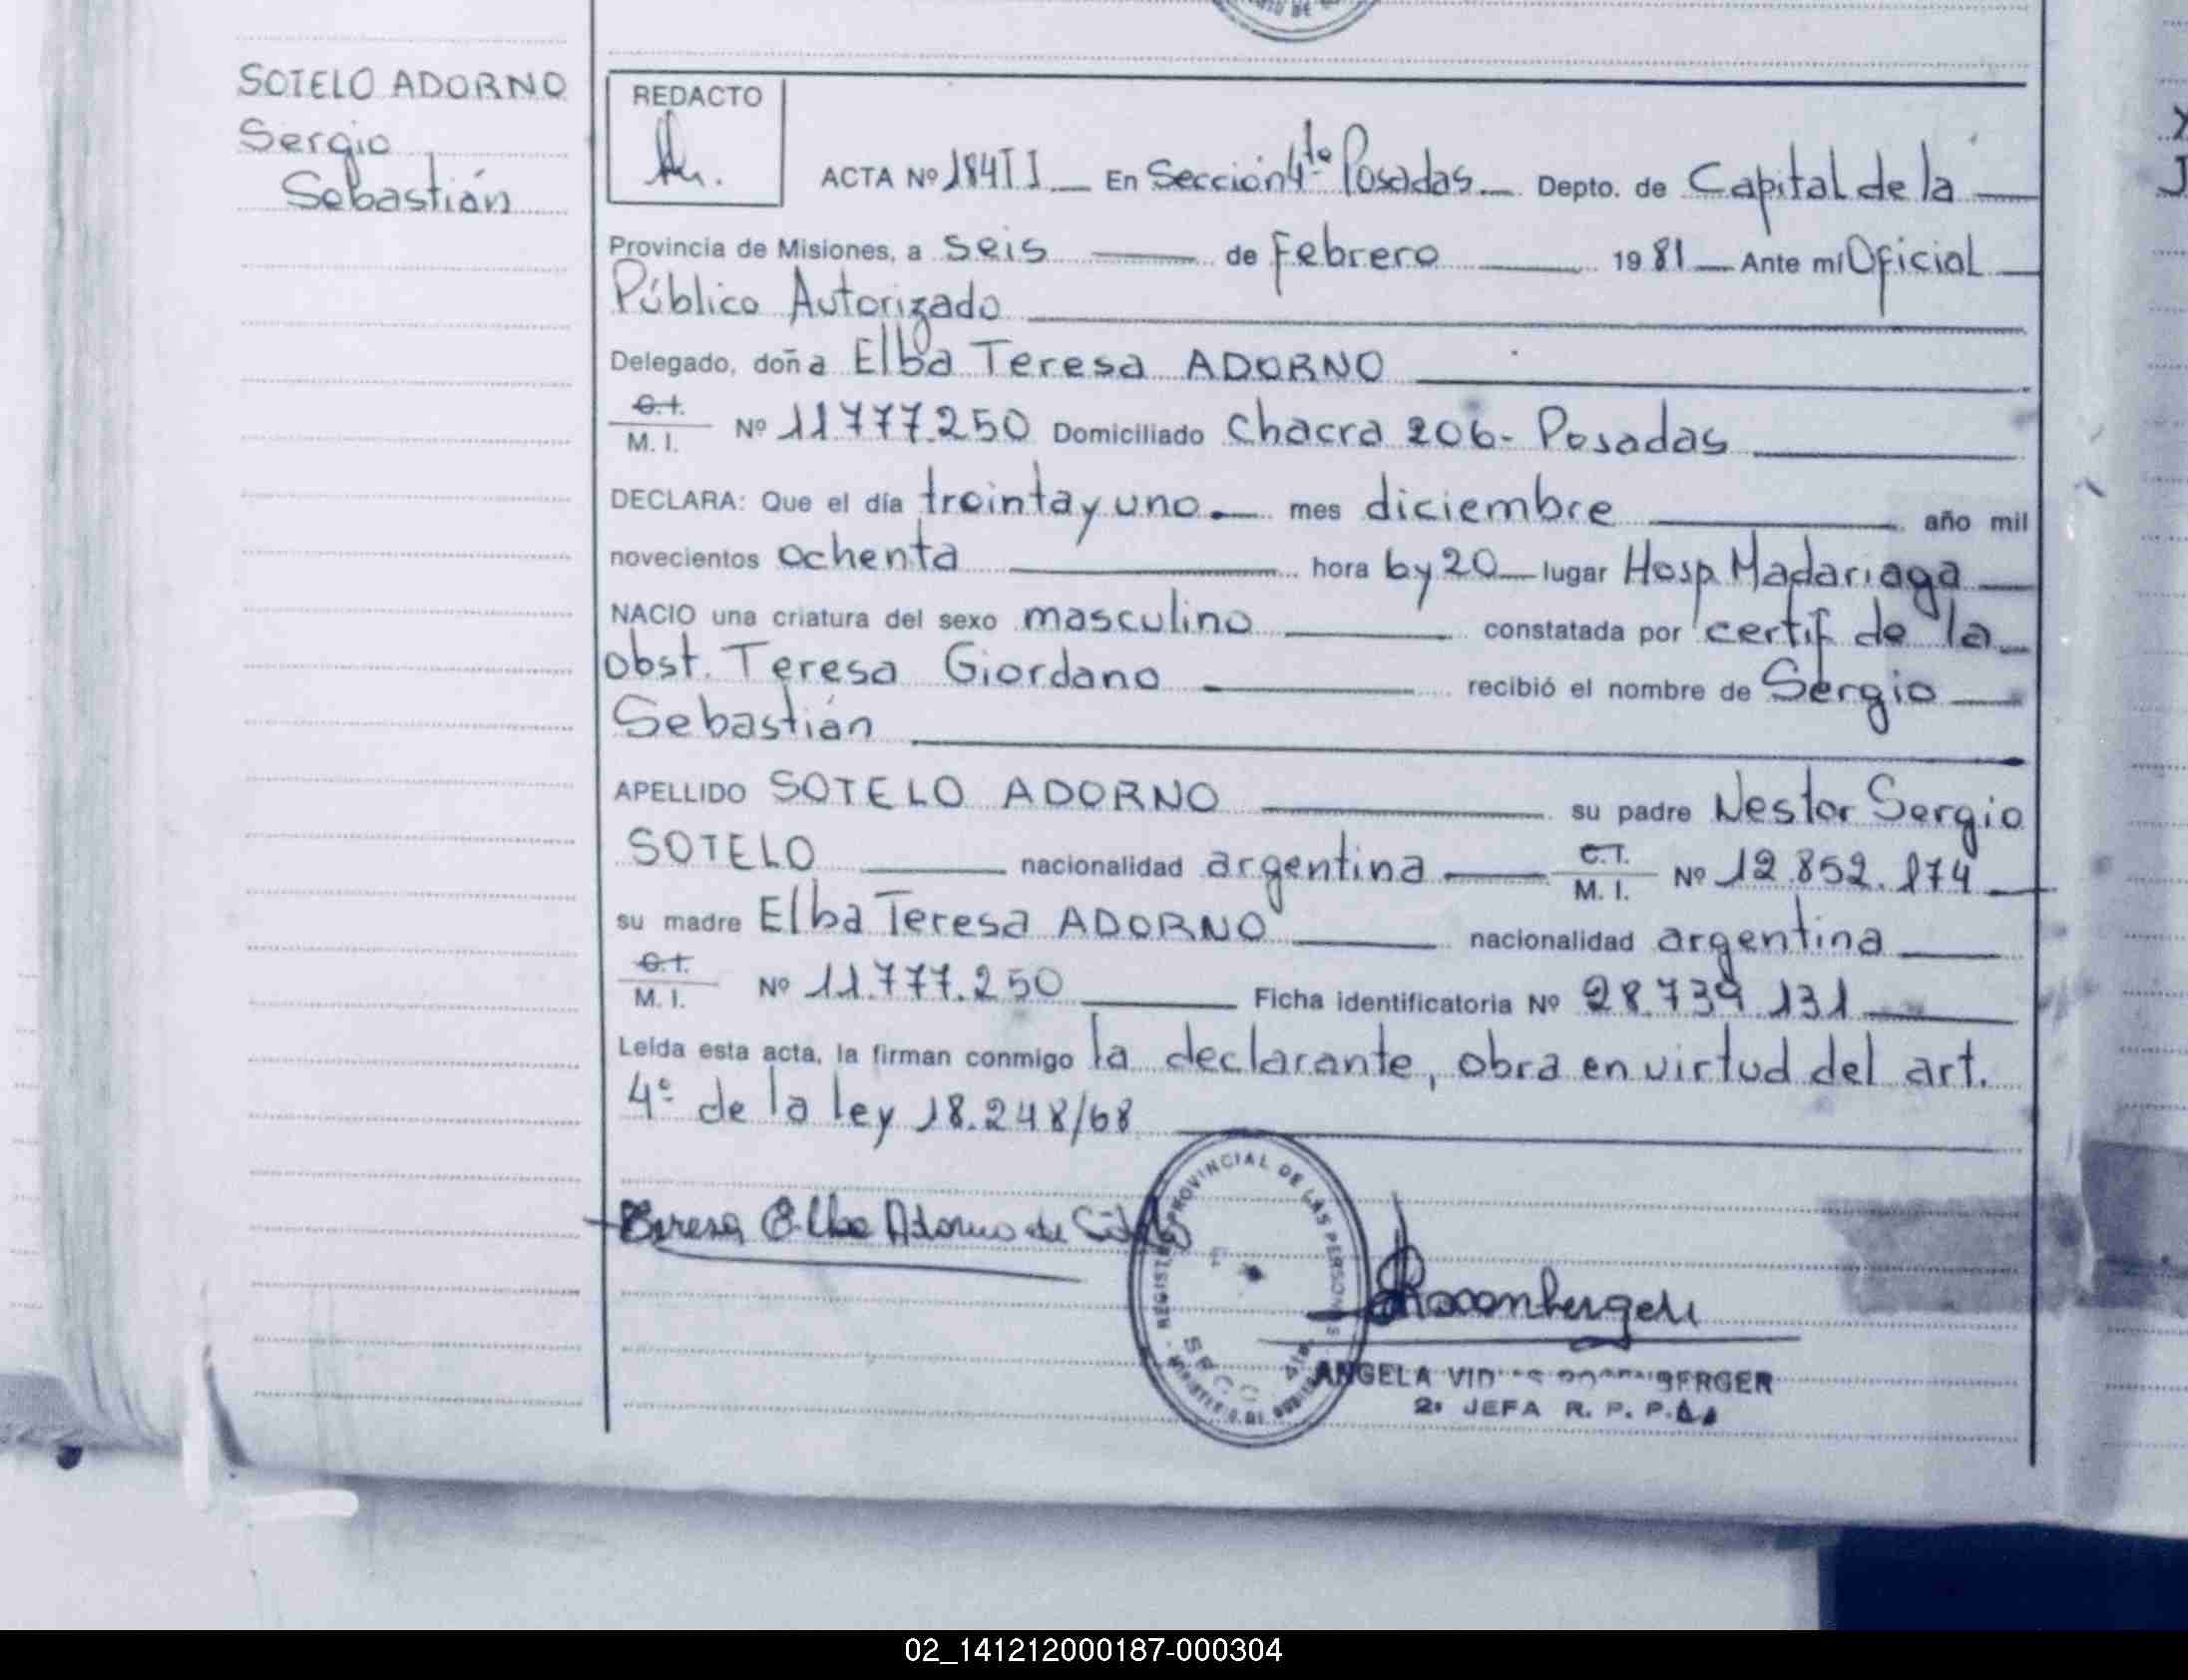 SOTELO ADORNO
Sergio
Sebastián
REDACTO
ACTA Nº 184 II En Sección 4ta Posadas Depto. de Capital de la
Provincia de Misiones, a seis de Febrero 1981 Ante mí Oficial
Público Autorizado
Delegado, doña Elba Teresa ADORNO
C.I.
M. I. Nº 11.777.250 Domiciliado Chacra 206- Posadas
DECLARA: Que el día treinta y uno mes diciembre año mil
novecientos ochenta hora 6 y 20 lugar Hosp. Madariaga
NACIO una criatura del sexo masculino constatada por certif de la
obst. Teresa Giordano recibió el nombre de Sergio
Sebastián
APELLIDO SOTELO ADORNO su padre Nestor Sergio
SOTELO nacionalidad argentina C.I. M. I. Nº 12.852.174
su madre Elba Teresa ADORNO nacionalidad argentina
C.I.
M. I. Nº 11.777.250 Ficha identificatoria Nº 28.739.131
Leída esta acta, la firman conmigo la declarante, obra en virtud del art.
4º de la ley 18.248/68
Teresa Elba Adorno de Sotelo
REGISTRO PROVINCIAL DE LAS PERSONAS
SECC. 4ta.
ANGELA BERGER
2ª JEFA R. P. P.
02_141212000187-000304